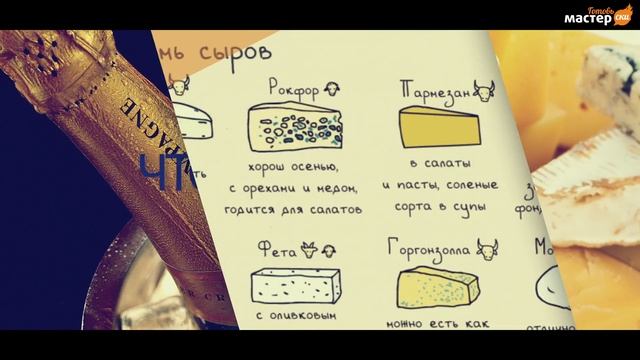 Готовь
мастерски
мь сыров
PAGNE
чт
Рокфор
хорош осенью,
с орехами и медом,
годится для салатов
Пармезан
в салаты
и пасты, соленые
сорта в супы
Фета
с оливковым
Горгонзолла
можно есть как
Мо
отлично
фон